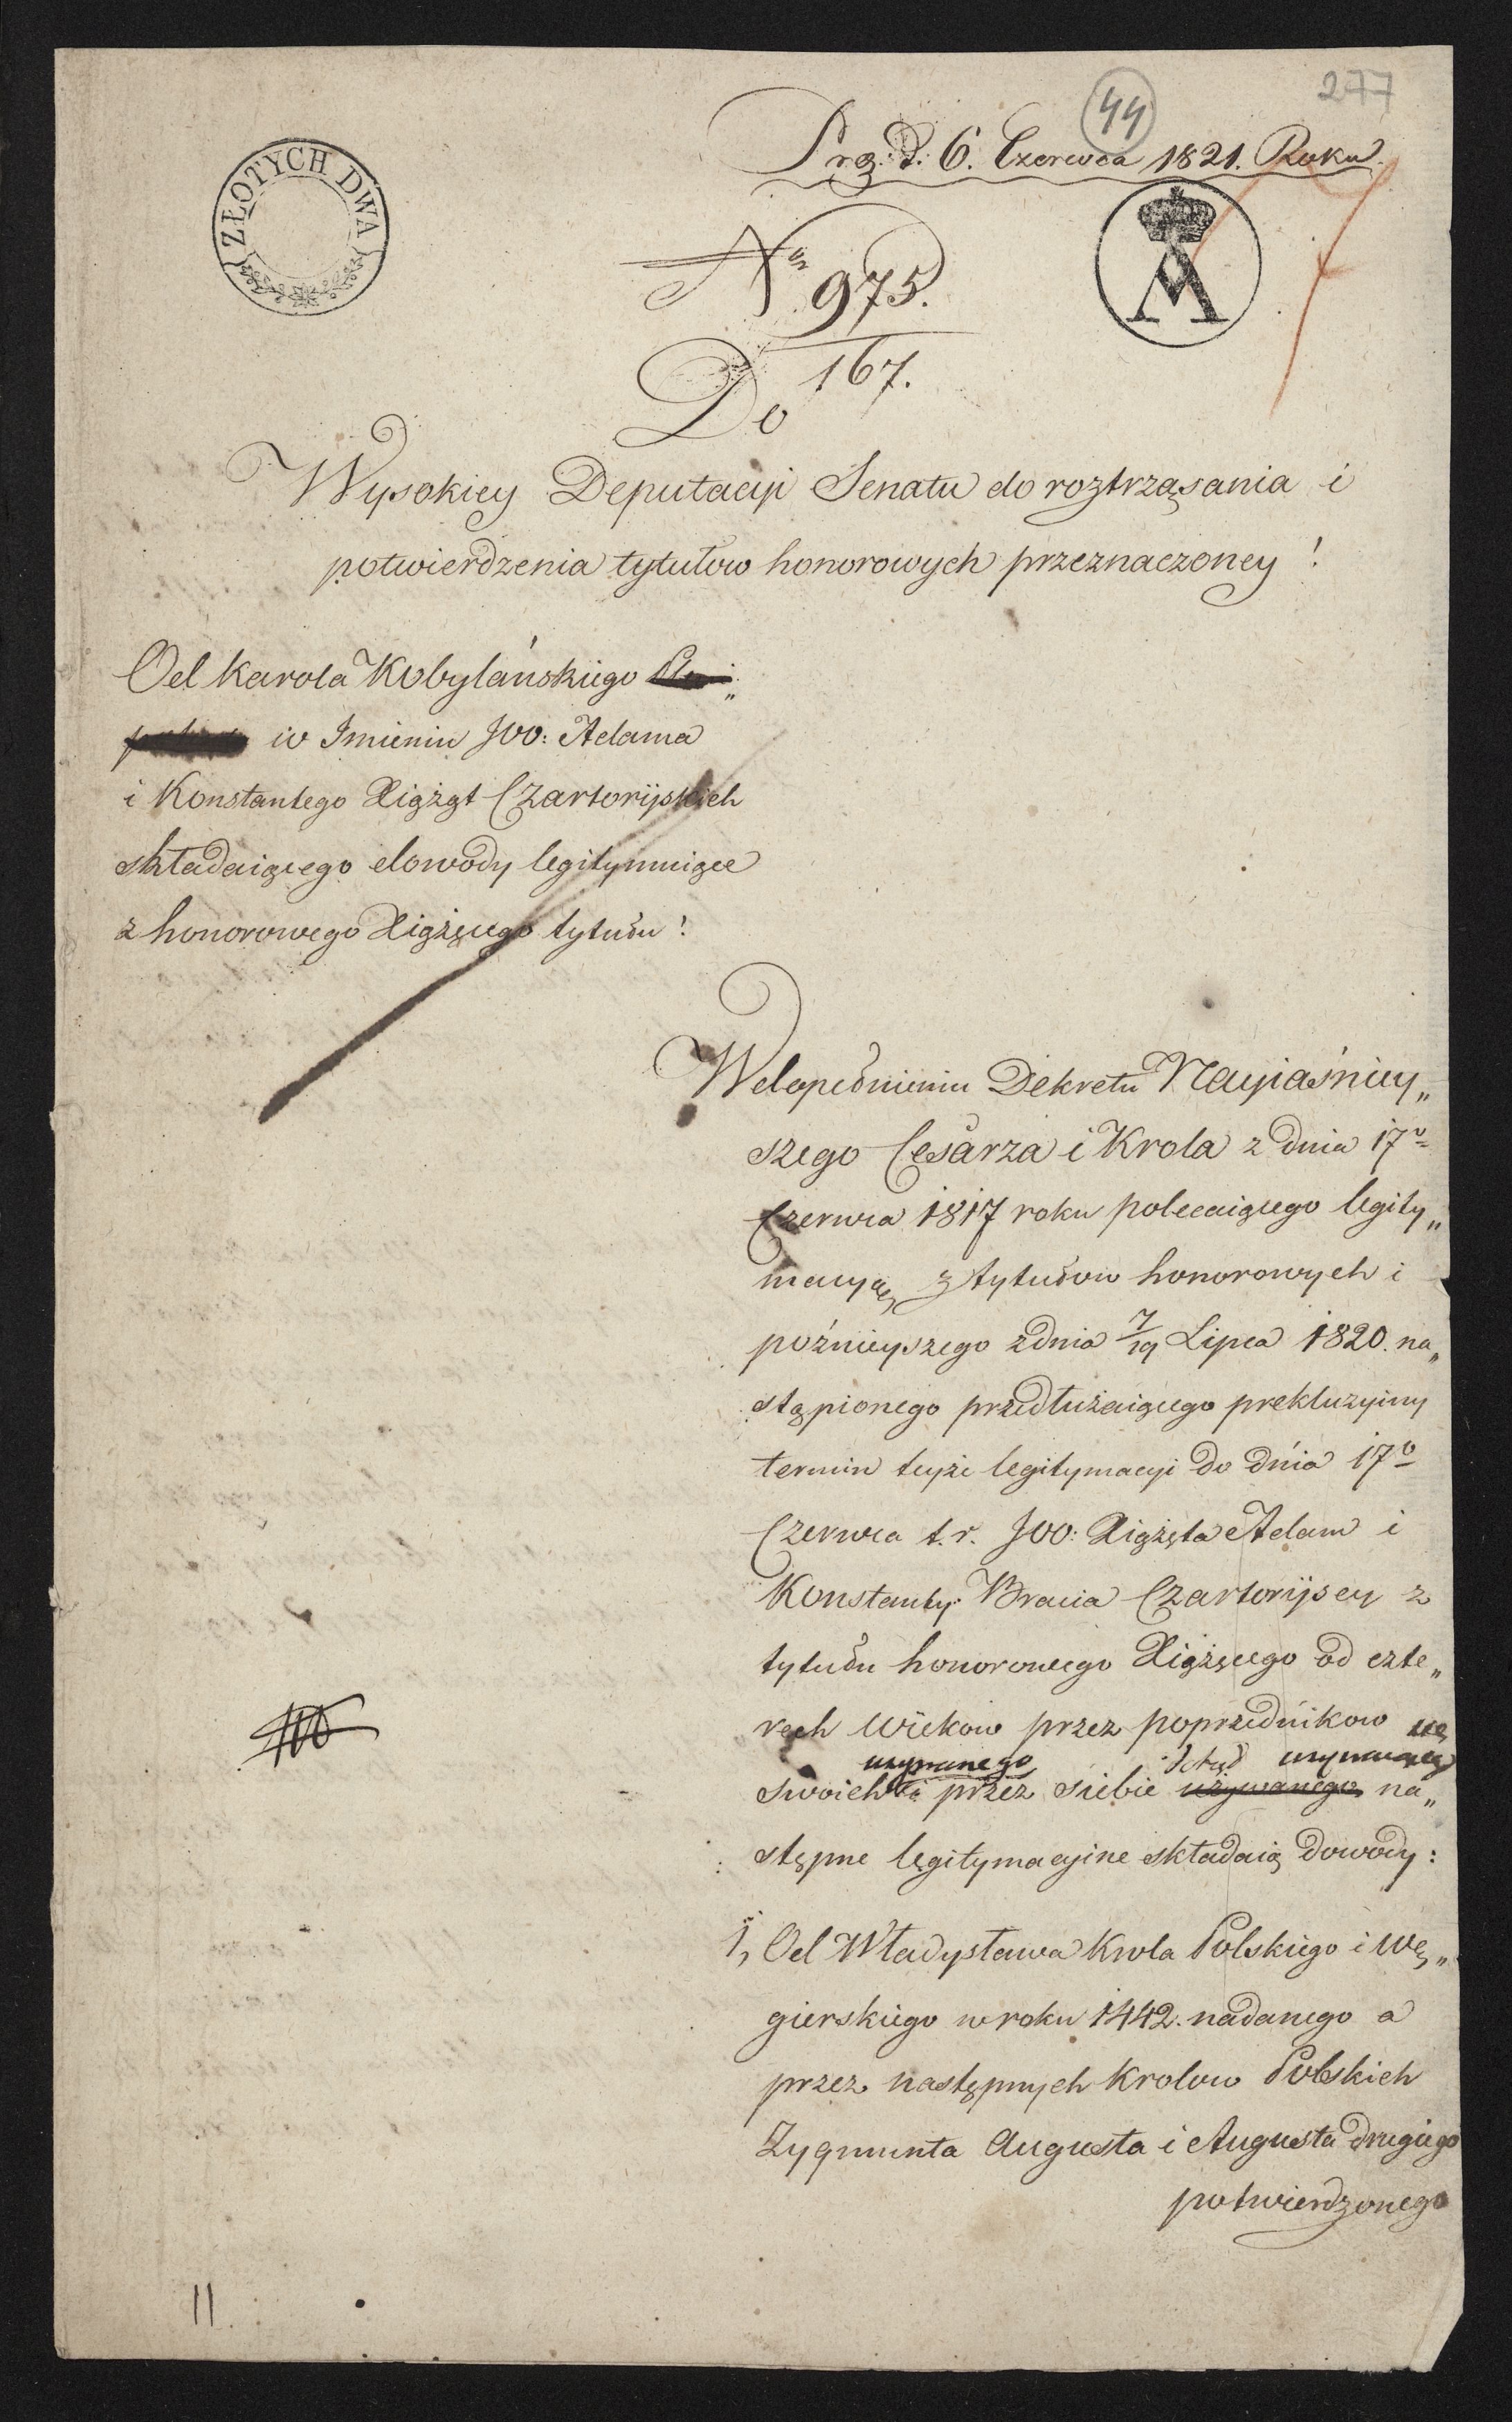 277
44
Prz: d: 6. Czerwca 1821. Roku.
ZŁOTYCH DWA
A
Nr 975.
167.
Do
Wysokiey Deputacyi Senatu do roztrząsania i
potwierdzenia tytułow honorowych przeznaczoney!
Od Karola Kobylańskiego
w Imieniu JOO: Adama
i Konstantego Xiążąt Czartoryskich
składaiącego dowody legitymuiące
z honorowego Xiążęcego tytułu!
W dopełnieniu Dekretu Nayiaśniey„
szego Cesarza i Krola z dnia 17o
Czerwca 1817 roku polecaiącego legity„
macyą z tytułow honorowych i
poźnieyszego z dnia 7/19 Lipca 1820. na„
stąpionego przedłużaiącego prekluzyiny
termin teyże legitymacyi do dnia 17o
Czerwca t. r. JOO: Xiążęta Adam i
Konstanty Bracia Czartoryscy z
tytułu honorowego Xiążęcego od czte„
rech wiekow przez poprzednikow
używanego dotąd używaiący
swoich i przez siebie używanego na„
stępne legitymacyine składaią dowody:
1, Od Władysława Krola Polskiego i Wę„
gierskiego w roku 1442. nadanego a
przez następnych Krolow Polskich
Zygmunta Augusta i Augusta drugiego
potwierdzonego
11